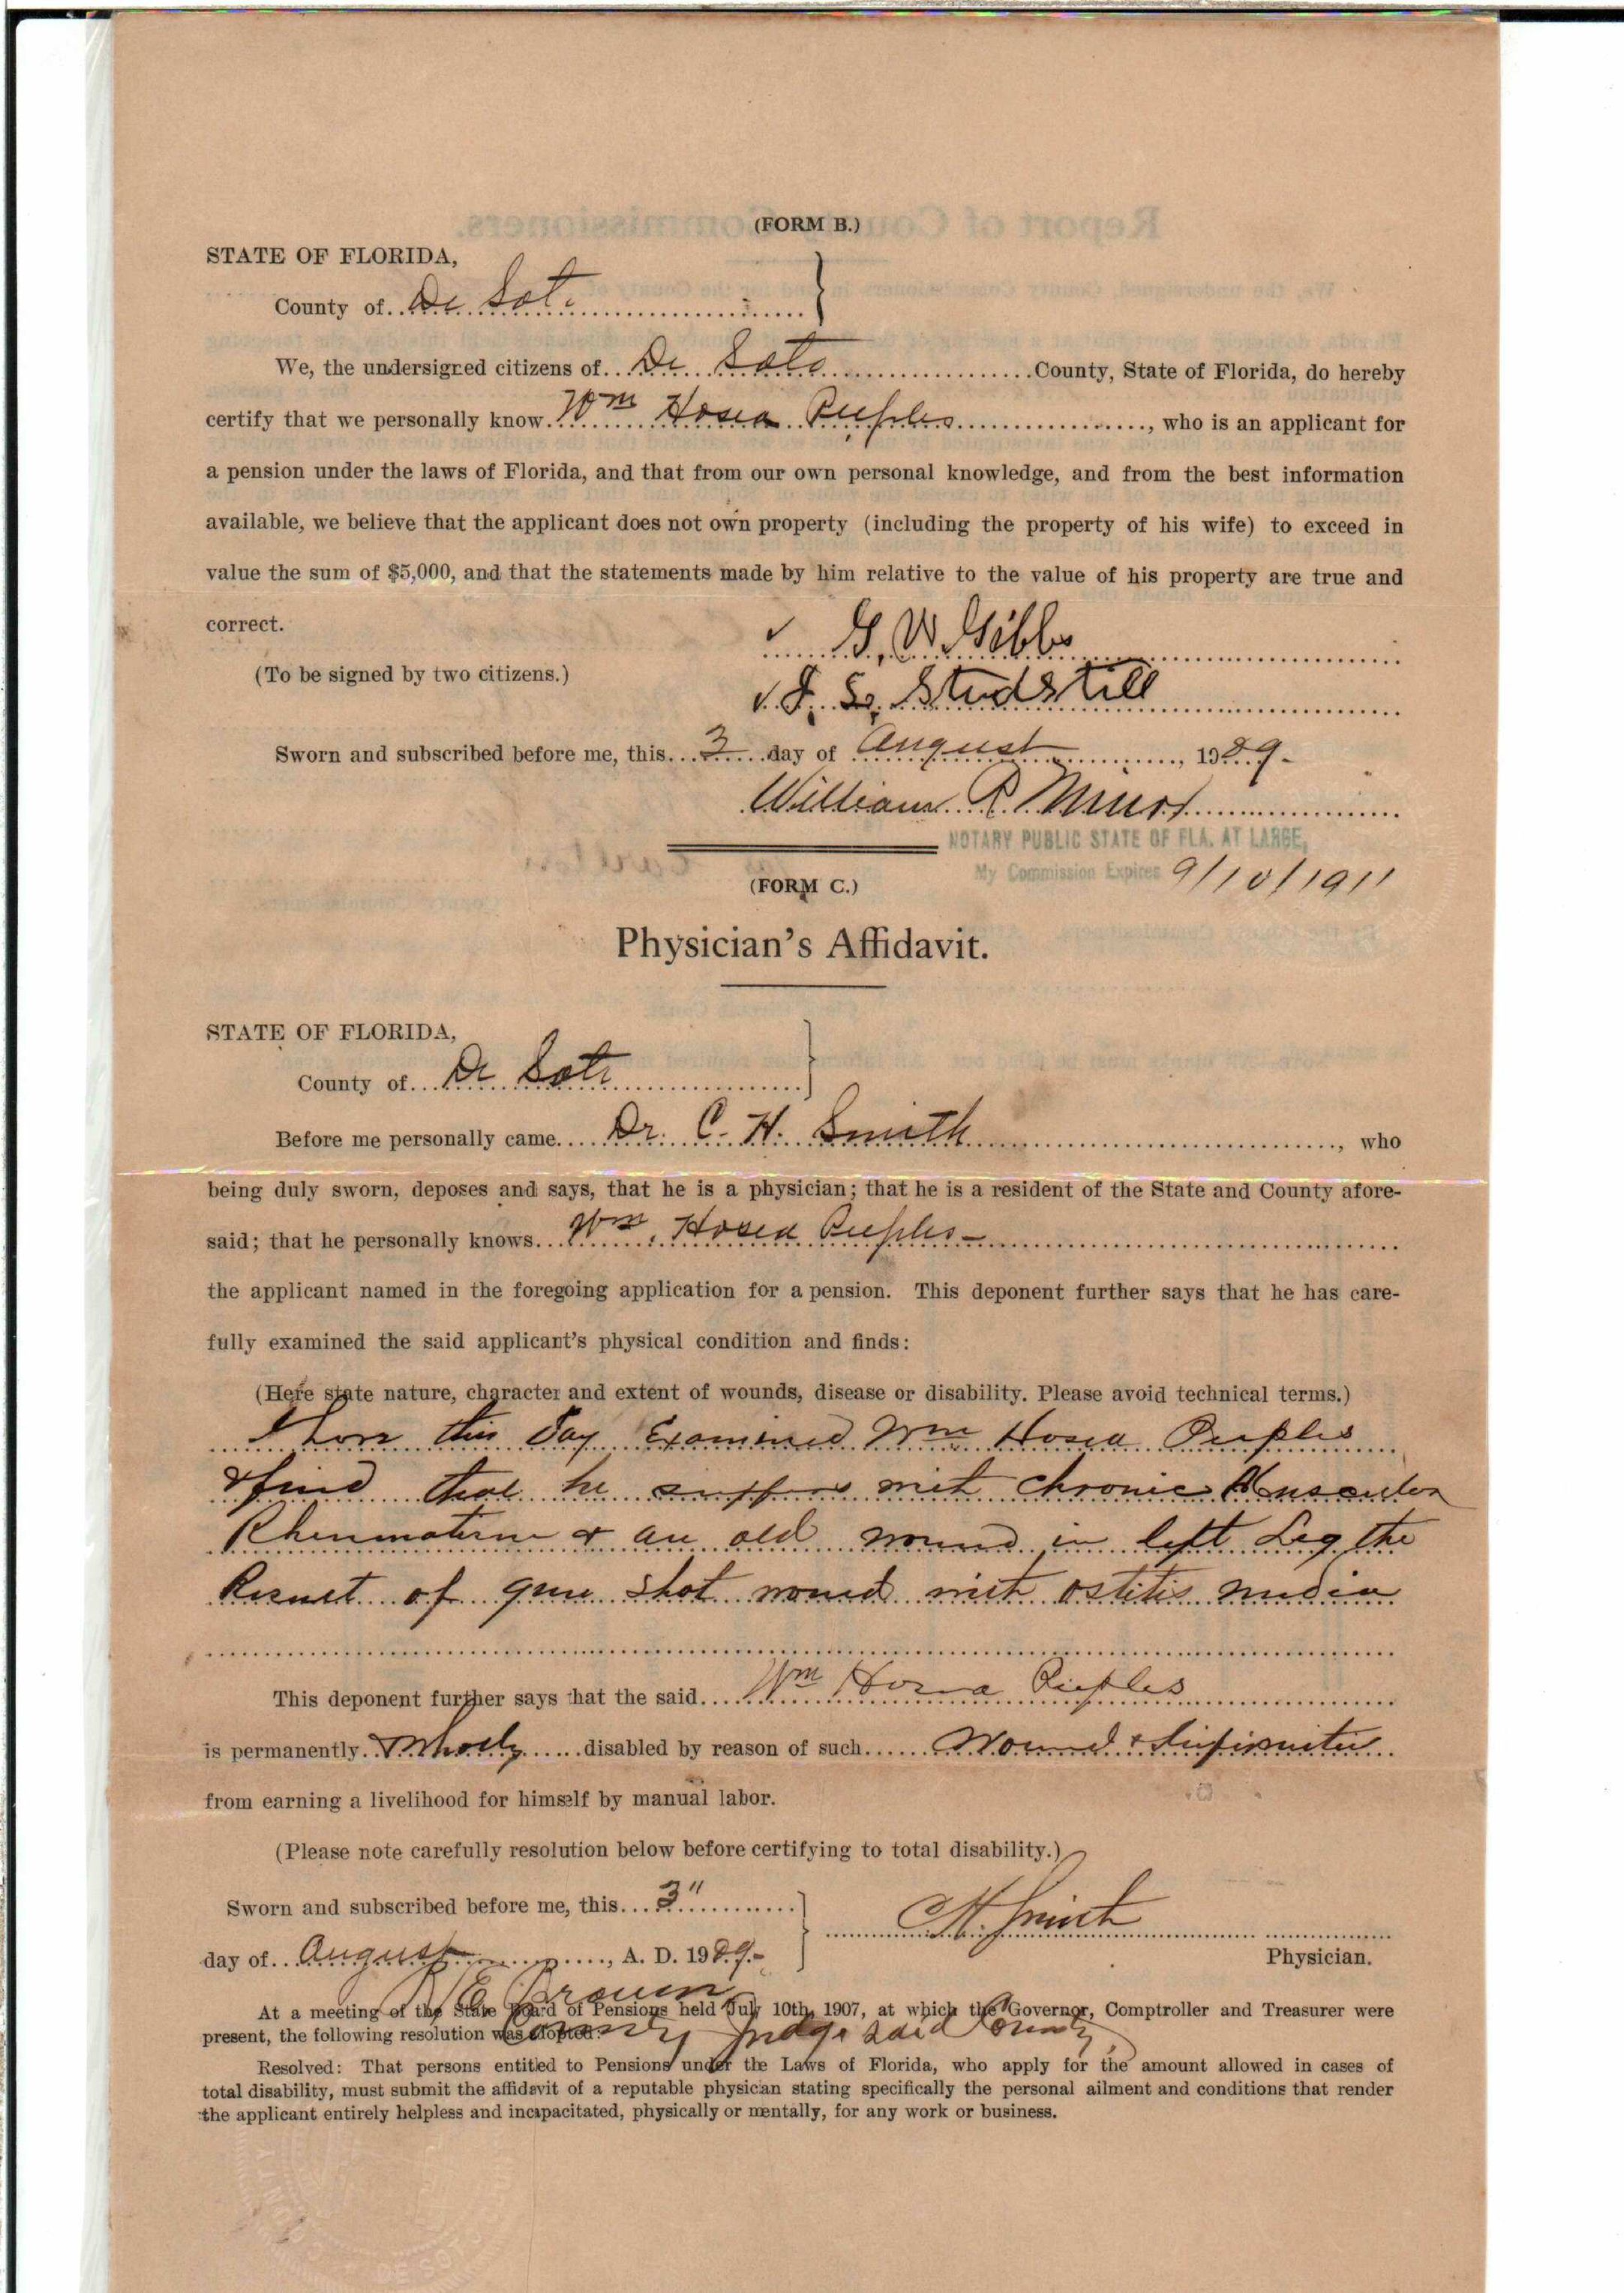 (FORM B.)
STATE OF FLORIDA,
County of De Soto
We, the undersigned citizens of De Soto County, State of Florida, do hereby
certify that we personally know Wm Hosea Peeples, who is an applicant for
a pension under the laws of Florida, and that from our own personal knowledge, and from the best information
available, we believe that the applicant does not own property (including the property of his wife) to exceed in
value the sum of $5,000, and that the statements made by him relative to the value of his property are true and
correct.
G. W. Gibbs
(To be signed by two citizens.)
J. S. Studstill
Sworn and subscribed before me, this 3 day of August, 1909
William R.
NOTARY PUBLIC STATE OF FLA. AT LARGE,
My Commission Expires 9/10/1911
(FORM C.)
Physician's Affidavit.
STATE OF FLORIDA,
County of De Soto
Before me personally came Dr. C. H. Smith, who
being duly sworn, deposes and says, that he is a physician; that he is a resident of the State and County afore-
said; that he personally knows Wm. Hosea Peeples
the applicant named in the foregoing application for a pension. This deponent further says that he has care-
fully examined the said applicant's physical condition and finds:
(Here state nature, character and extent of wounds, disease or disability. Please avoid technical terms.)
I have this Day Examined Wm Hosea Peeples
& find that he suffers with chronic Muscular
Rheumatism & an old wound in left Leg the
Result of gun shot wound with ostitis media
This deponent further says that the said Wm Hosea Peeples
is permanently & Wholly disabled by reason of such Wound & Infirmities
from earning a livelihood for himself by manual labor.
(Please note carefully resolution below before certifying to total disability.)
Sworn and subscribed before me, this 3"
C H. Smith
day of August, A. D. 1909
Physician.
E Brown
County Judge said County
At a meeting of the State Board of Pensions held July 10th, 1907, at which the Governor, Comptroller and Treasurer were
present, the following resolution was adopted:
Resolved: That persons entitled to Pensions under the Laws of Florida, who apply for the amount allowed in cases of
total disability, must submit the affidavit of a reputable physician stating specifically the personal ailment and conditions that render
the applicant entirely helpless and incapacitated, physically or mentally, for any work or business.